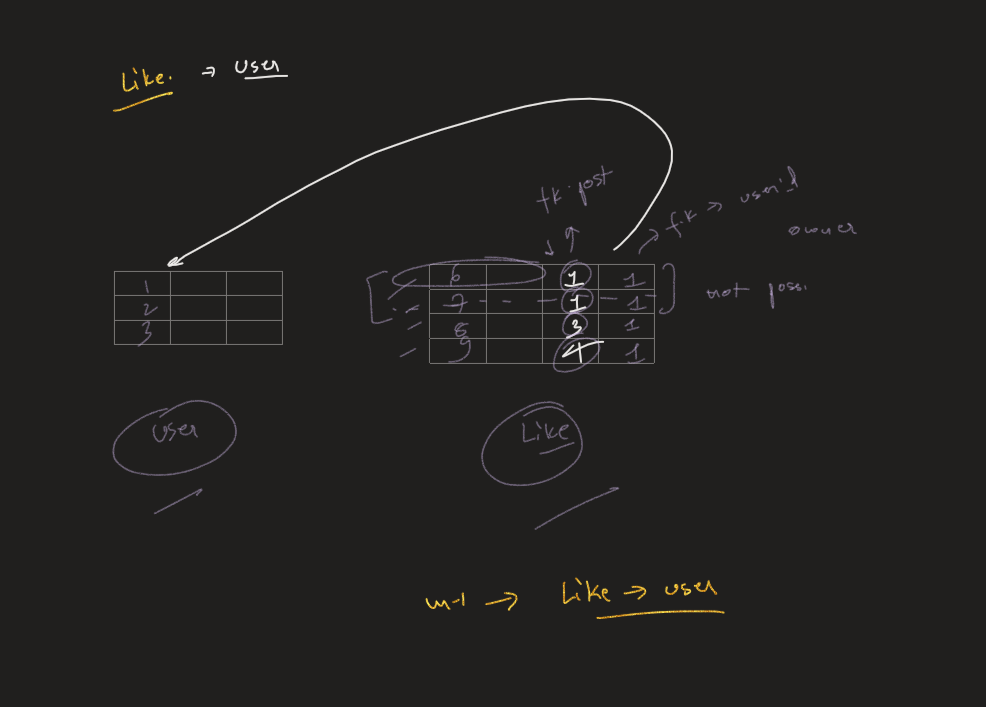 Like. → user
fk. post
f.k → userid
owner
1
2
3
6 1 1
7 - - - 1 - 1 -
8 3 1
9 4 1
not poss.
user
Like
m-1 → Like → user